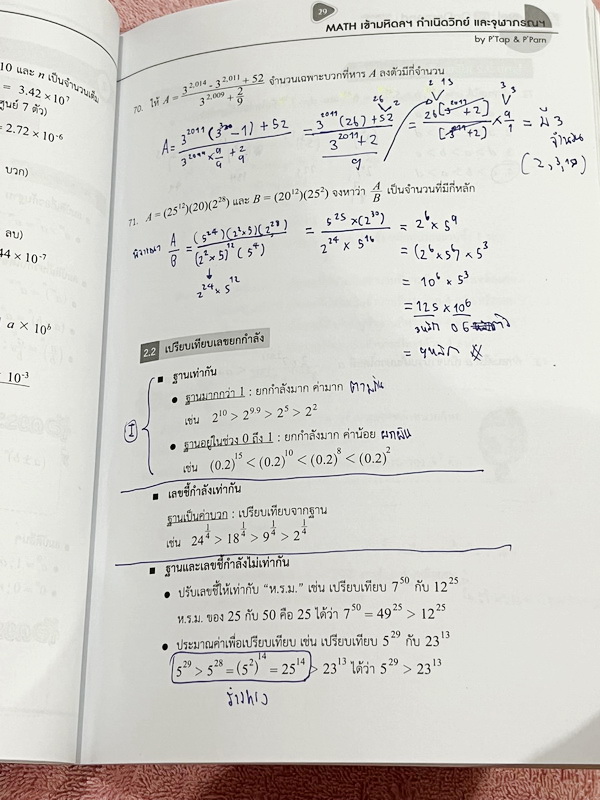 29
MATH เข้ามหิดลฯ กำเนิดวิทย์ และจุฬาภรณฯ
by P'Tap & P'Parn
10 และ n เป็นจำนวนเต็ม
= 3.42 × 10⁷
ศูนย์ 7 ตัว)
= 2.72 × 10⁻⁶
บวก)
ลบ)
44 × 10⁻⁷
a × 10ᵇ
10⁻³
70. ให้ A = (3^2,014 - 3^2,011 + 52) / (3^2,009 + 2/9) จำนวนเฉพาะบวกที่หาร A ลงตัวมีกี่จำนวน
= มี 3
จำนวน
71. A = (25¹²)(20)(2²⁸) และ B = (20¹²)(25²) จงหาว่า A/B เป็นจำนวนที่มีกี่หลัก
A/B = (5²⁴)(2²×5)(2²⁸) / (2²×5)¹²(5⁴) = 5²⁵×(2³⁰) / 2²⁴×5¹⁶ = 2⁶×5⁹
2²⁴×5¹²
= (2⁶×5⁶)×5³
= 10⁶×5³
= 125×10⁶
= 9หลัก
2.2 เปรียบเทียบเลขยกกำลัง
I
▪ ฐานเท่ากัน
● ฐานมากกว่า 1 : ยกกำลังมาก ค่ามาก ตามกัน
เช่น 2¹⁰ > 2^9.9 > 2⁵ > 2²
● ฐานอยู่ในช่วง 0 ถึง 1 : ยกกำลังมาก ค่าน้อย ผกผัน
เช่น (0.2)¹⁵ < (0.2)¹⁰ < (0.2)⁸ < (0.2)²
▪ เลขชี้กำลังเท่ากัน
ฐานเป็นค่าบวก : เปรียบเทียบจากฐาน
เช่น 24^(1/4) > 18^(1/4) > 9^(1/4) > 2^(1/4)
▪ ฐานและเลขชี้กำลังไม่เท่ากัน
● ปรับเลขชี้ให้เท่ากับ "ห.ร.ม." เช่น เปรียบเทียบ 7⁵⁰ กับ 12²⁵
ห.ร.ม. ของ 25 กับ 50 คือ 25 ได้ว่า 7⁵⁰ = 49²⁵ > 12²⁵
● ประมาณค่าเพื่อเปรียบเทียบ เช่น เปรียบเทียบ 5²⁹ กับ 23¹³
5²⁹ > 5²⁸ = (5²)¹⁴ = 25¹⁴ > 23¹³ ได้ว่า 5²⁹ > 23¹³